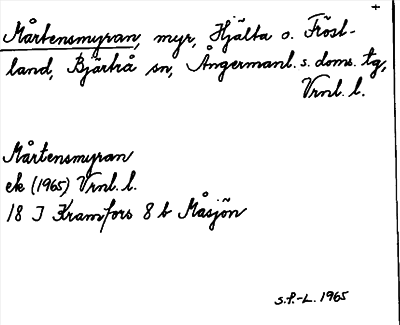 +
Mårtensmyran, myr, Hjälta o. Fröst-
land, Bjärtrå sn, Ångermanl. s. doms. tg,
Vrnl. l.
Mårtensmyran
ek (1965) Vrnl. l.
18 J Kramfors 8 b Måsjön
s.f.-L. 1965